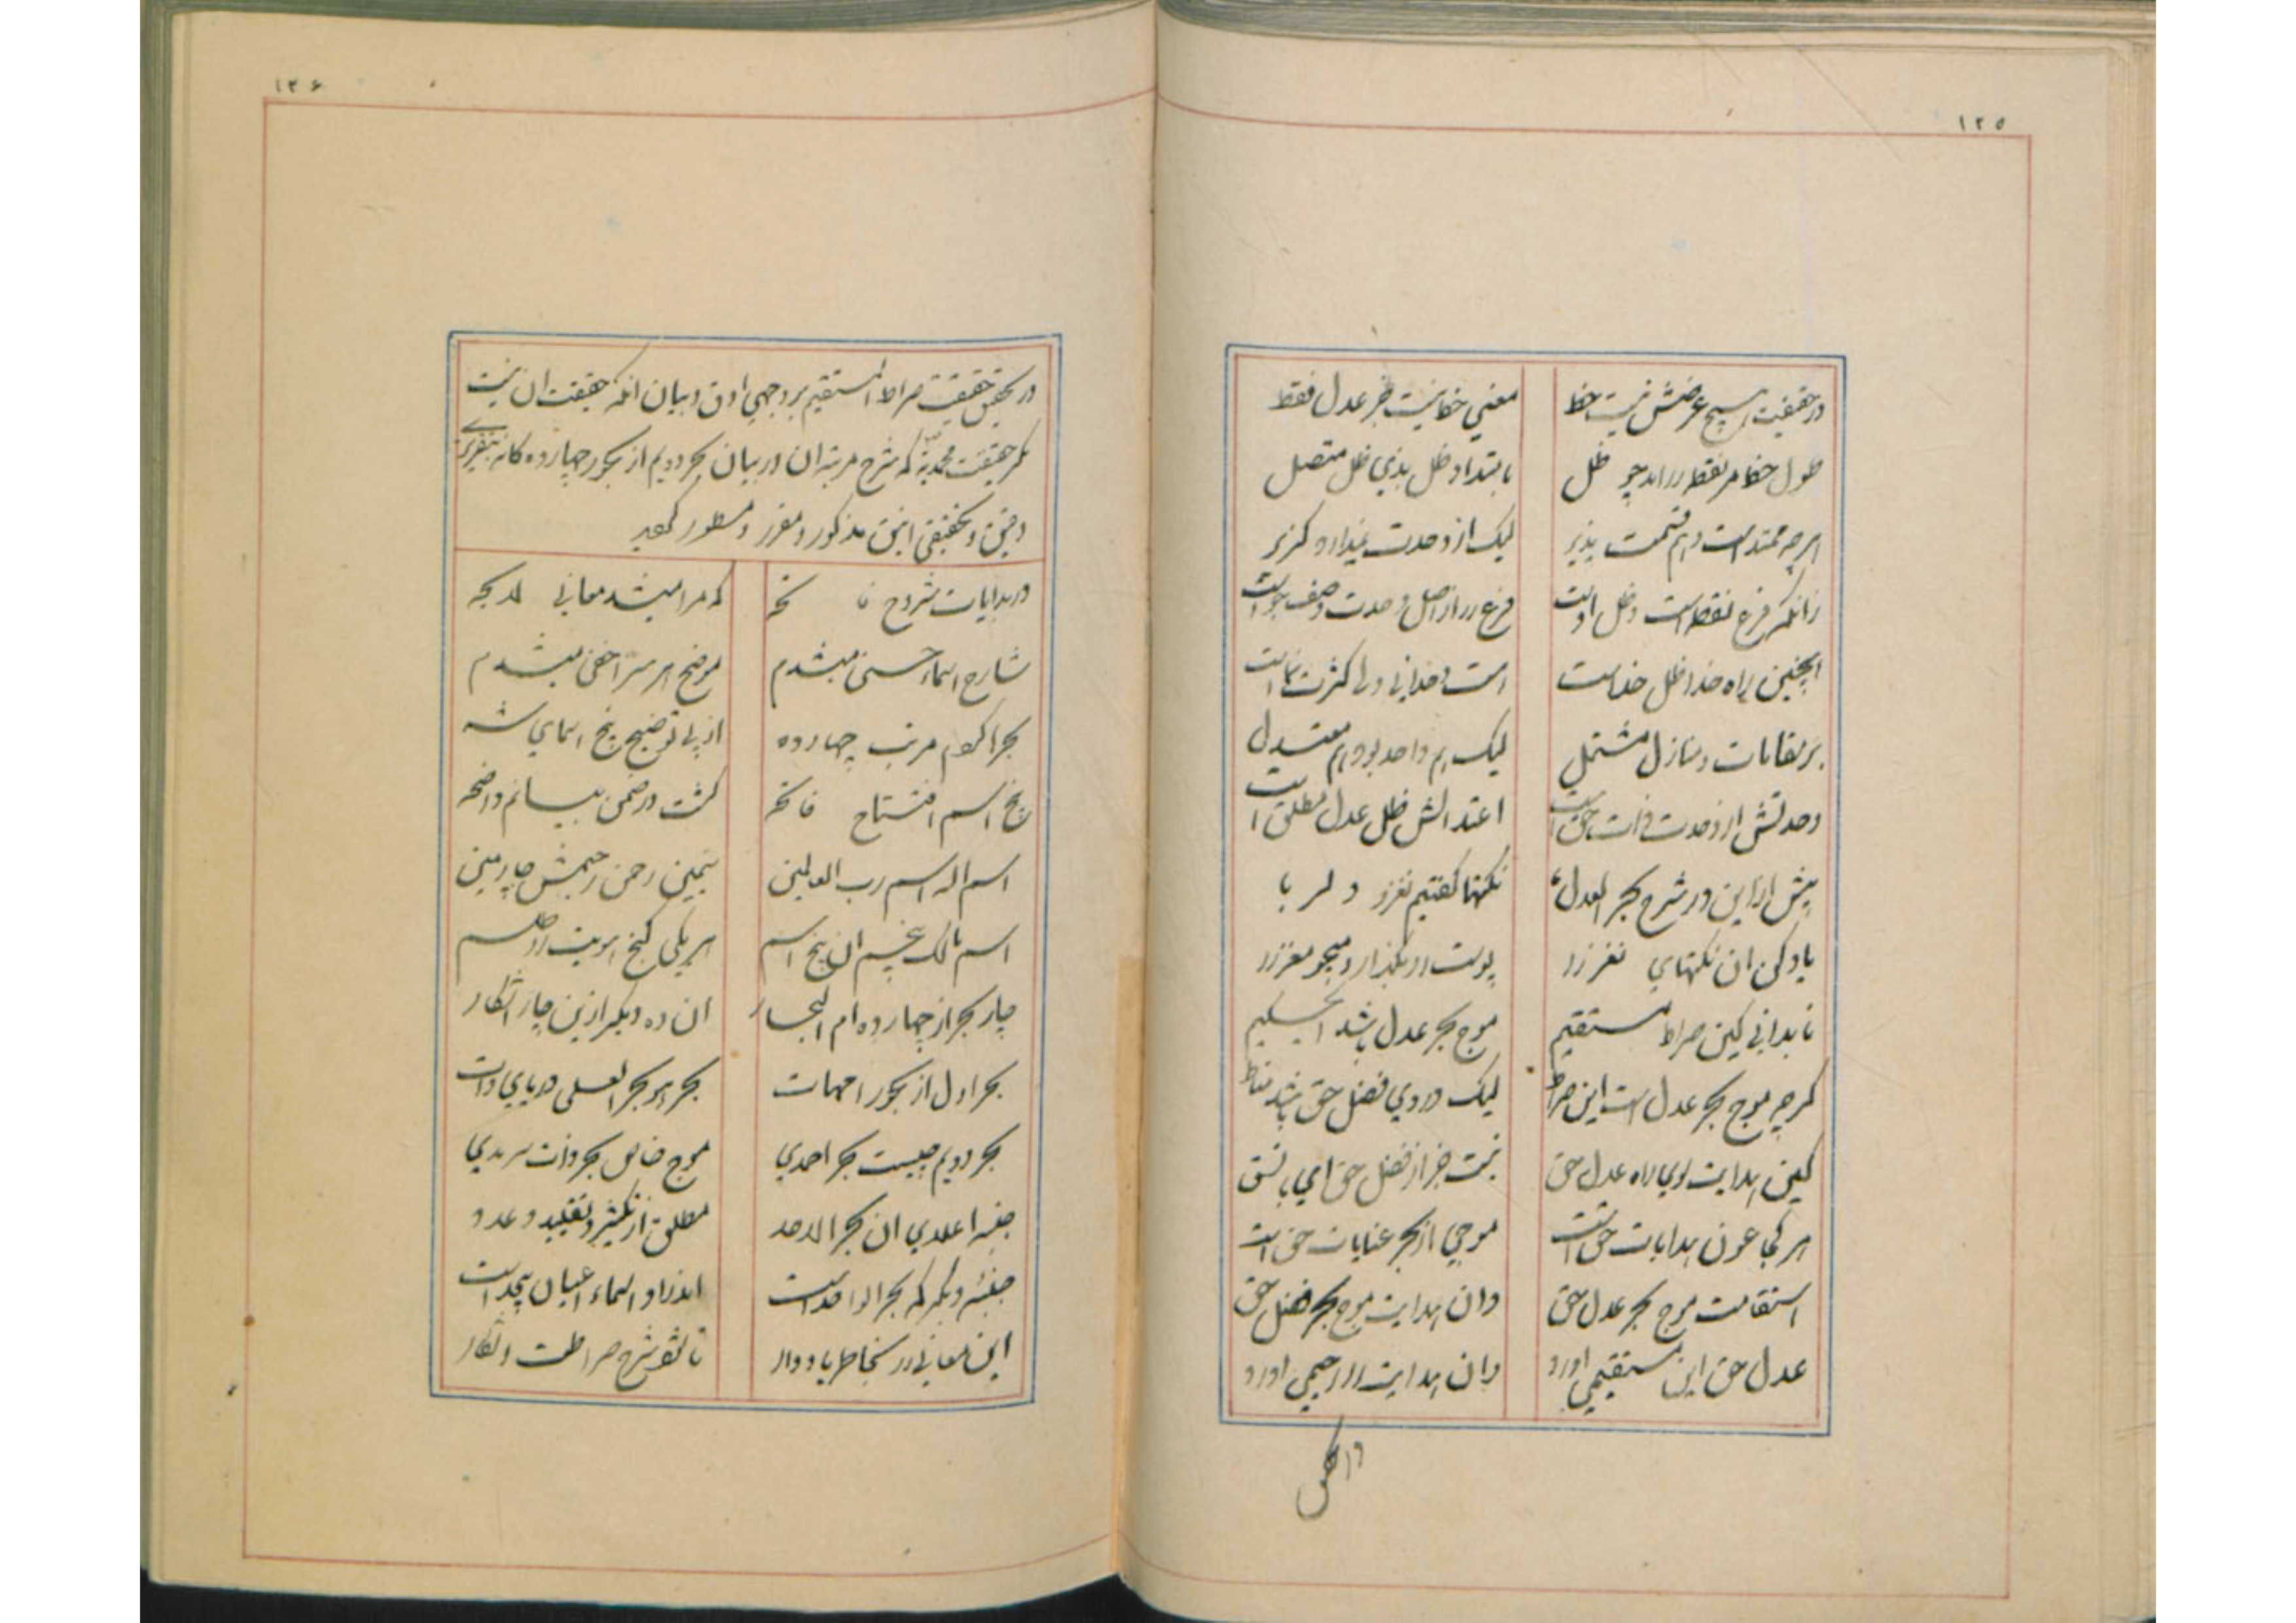 ۱۲۵
در حقیقت هیچ عرضش نیست خط معنی خط نیست جز عدل فقط
طول خط مر نقطه را آمد چو ظل بامتداد ظل بذی ظل متصل
هرچه ممتد است و هم قسمت پذیر لیک از وحدت ندارد گزیر
زانکه فرع نقطه است و ظل اوست فرع را از اصل وحدت وصف و خوست
همچنین راه خدا ظل خداست هست وحدانی ولی کثرت نماست
بر مقامات و منازل مشتمل لیک هم واحد بود هم معتدل
وحدتش از وحدت ذات حق است اعتدالش ظل عدل مطلق است
پیش از این در شرح بحر العدل نکتها گفتیم نغز و دلربا
یاد کن ان نکتهای نغز را پوست را بگذار و میجو مغز را
تا بدانی کین صراط مستقیم موج بحر عدل باشد ای سلیم
گرچه موج بحر عدل است این صراط لیک در وی فضل حق باشد مناط
کین هدایت سوی راه عدل حق نیست جز از فضل حق ای با نسق
هر کجا عون هدایات حق است موجی از بحر عنایات حق است
استقامت موج بحر عدل حق وان هدایت موج بحر فضل حق
عدل حق این مستقیمی اورد وان هدایت را رحیمی اورد
۱۲۶
در تحقیق حقیقت صراط المستقیم بر وجهی ادق و بیان انکه حقیقت ان نیست
مگر حقیقت محمدیه که شرح مرتبه ان در بیان بحر دویم از بحور چهارده کانه بتقریری
دقیق و تحقیقی انیق مذکور و مقرر و مسطور
در بدایات شروح فاتحه که مرا میشد معانی
شارح اسماء حسنی میشدم موضح هر سر اخفی میشدم
بحرها کردم مرتب چهارده از پی توضیح پنج اسمای شه
پنج اسم افتتاح فاتحه گشت در ضمن بیانم واضحه
اسم الله اسم رب العالمین سیمین رحمن رحیمش چارمین
اسم مالک پنجم ان پنج اسم هر یکی گنج هویت را طلسم
چار بحر از چهارده ام البحار ان ده دیگر ازین چار اشکار
بحر اول از بحور امهات بحر هو بحر العلی دریای ذات
بحر دویم چیست بحر احمدی موج خاص بحر ذات سرمدی
جنبه اعلای ان بحر الاحد مطلق از تکثیر و تقیید و عدد
جنبه دیگر که بحر الواحد است اندر او اسماء اعیان بیحد است
این معانی را بخاطر یاد دار تا شود شرح صراطت اشکار